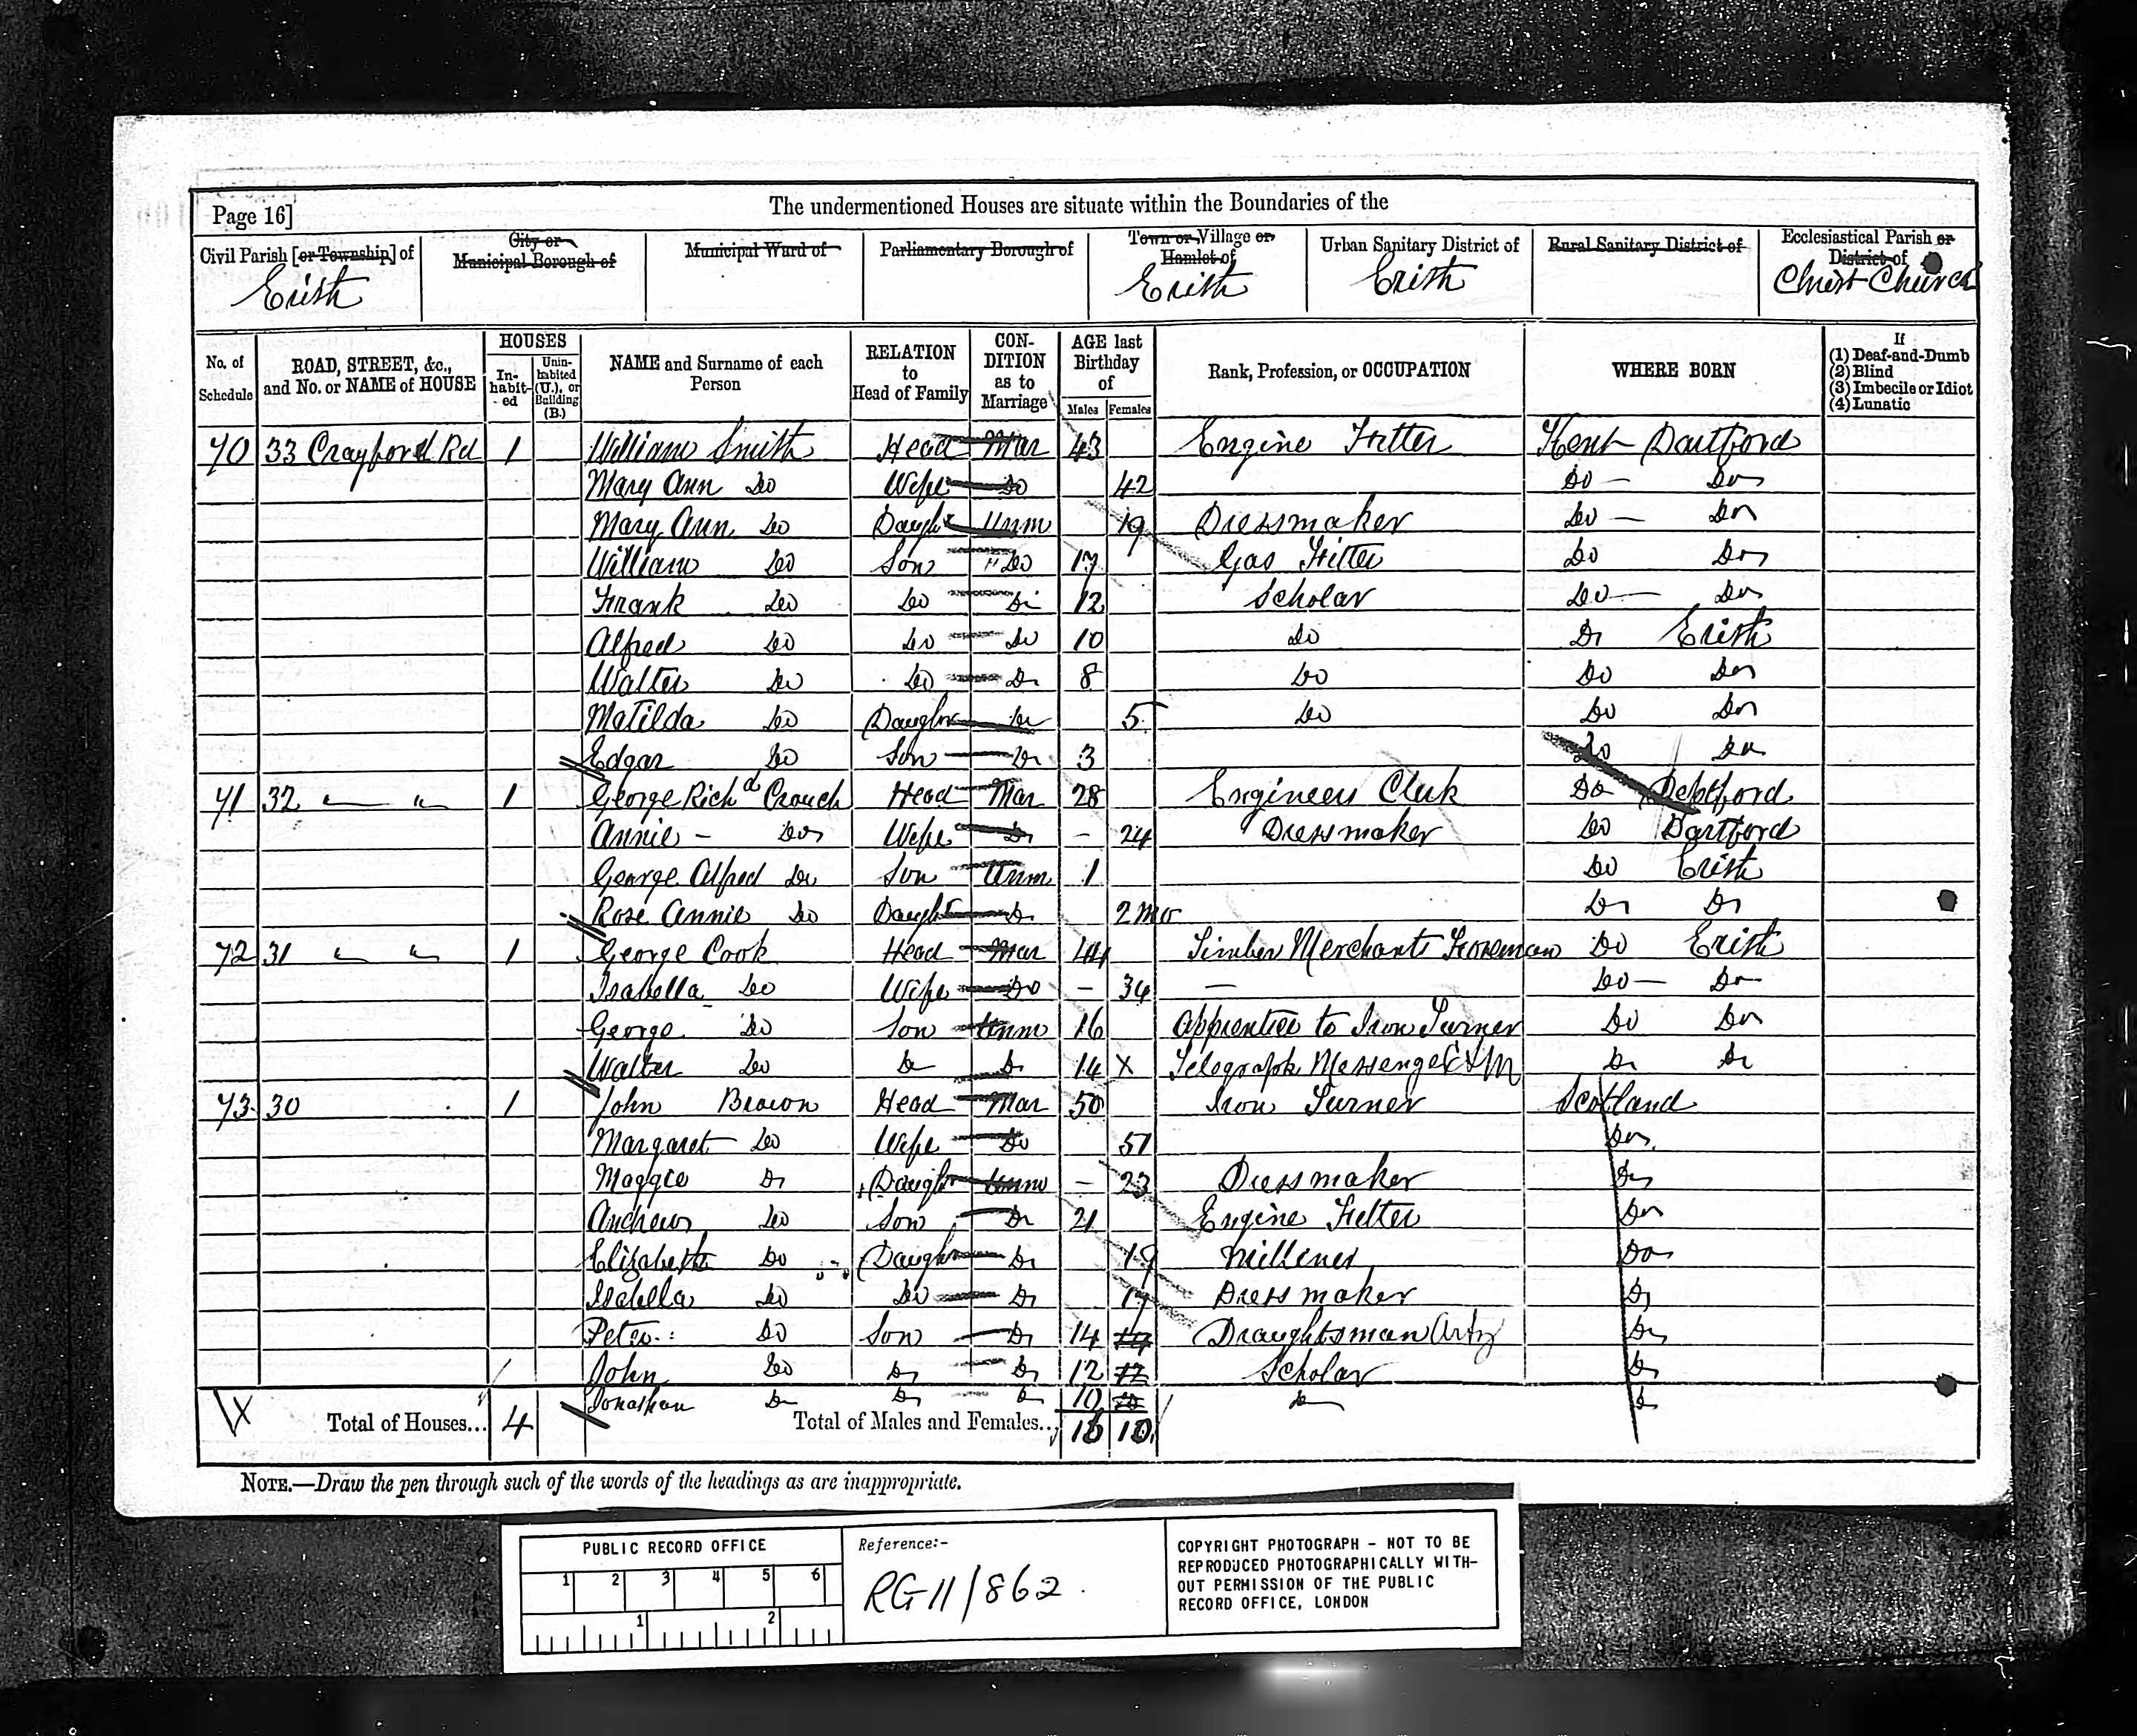 Page 16]
The undermentioned Houses are situate within the Boundaries of the
Civil Parish [or Township] of Erith
City or Municipal Borough of
Municipal Ward of
Parliamentary Borough of
Town or Village or Hamlet of Erith
Urban Sanitary District of Erith
Rural Sanitary District of
Ecclesiastical Parish or District of Christ Church
No. of Schedule
ROAD, STREET, &c., and No. or NAME of HOUSE
HOUSES
In-habit-ed
Unin-habited (U.), or Building (B.)
NAME and Surname of each Person
RELATION to Head of Family
CON-DITION as to Marriage
AGE last Birthday of
Males Females
Rank, Profession, or OCCUPATION
WHERE BORN
If
(1) Deaf-and-Dumb
(2) Blind
(3) Imbecile or Idiot
(4) Lunatic
70 33 Crayford Rd 1 William Smith Head Mar 43 Engine Fitter Kent Dartford
Mary Ann Do Wife Do 42 Do Do
Mary Ann Do Daugh Unm 19 Dressmaker Do Do
William Do Son " Do 17 Gas Fitter Do Do
Frank Do Do Do 12 Scholar Do Do
Alfred Do Do Do 10 Do Do Erith
Walter Do Do Do 8 Do Do Do
Matilda Do Daughr Do 5 Do Do Do
Edgar Do Son Do 3 Do Do
71 32 " " 1 George Richd Crouch Head Mar 28 Engineers Clerk Do Deptford
Annie - Do Wife Do - 24 Dressmaker Do Dartford
George Alfred Do Son Unm 1 Do Erith
Rose Annie Do Daught Do 2 mo Do Do
72 31 " " 1 George Cook Head Mar 44 Timber Merchants Foreman Do Erith
Isabella Do Wife Do - 34 - Do Do
George Do Son Unm 16 Apprentice to Iron Turner Do Do
Walter Do Do Do 14 X Telegraph Messenger Do Do
73 30 1 John Brown Head Mar 50 Iron Turner Scotland
Margaret Do Wife Do 51 Do
Maggie Do Daughr Unm - 23 Dressmaker Do
Andrew Do Son Do 21 Engine Fitter Do
Elizabeth Do Daughr Do 19 Milliner Do
Isabella Do Do Do 17 Dressmaker Do
Peter Do Son Do 14 14 Draughtsman Do
John Do Do Do 12 12 Scholar Do
Jonathan Do Do Do 10 10 Do Do
Total of Houses... 4 Total of Males and Females... 16 10
NOTE.—Draw the pen through such of the words of the headings as are inappropriate.
PUBLIC RECORD OFFICE
1 2 3 4 5 6
1 2
Reference:-
RG 11/862
COPYRIGHT PHOTOGRAPH - NOT TO BE
REPRODUCED PHOTOGRAPHICALLY WITH-
OUT PERMISSION OF THE PUBLIC
RECORD OFFICE, LONDON